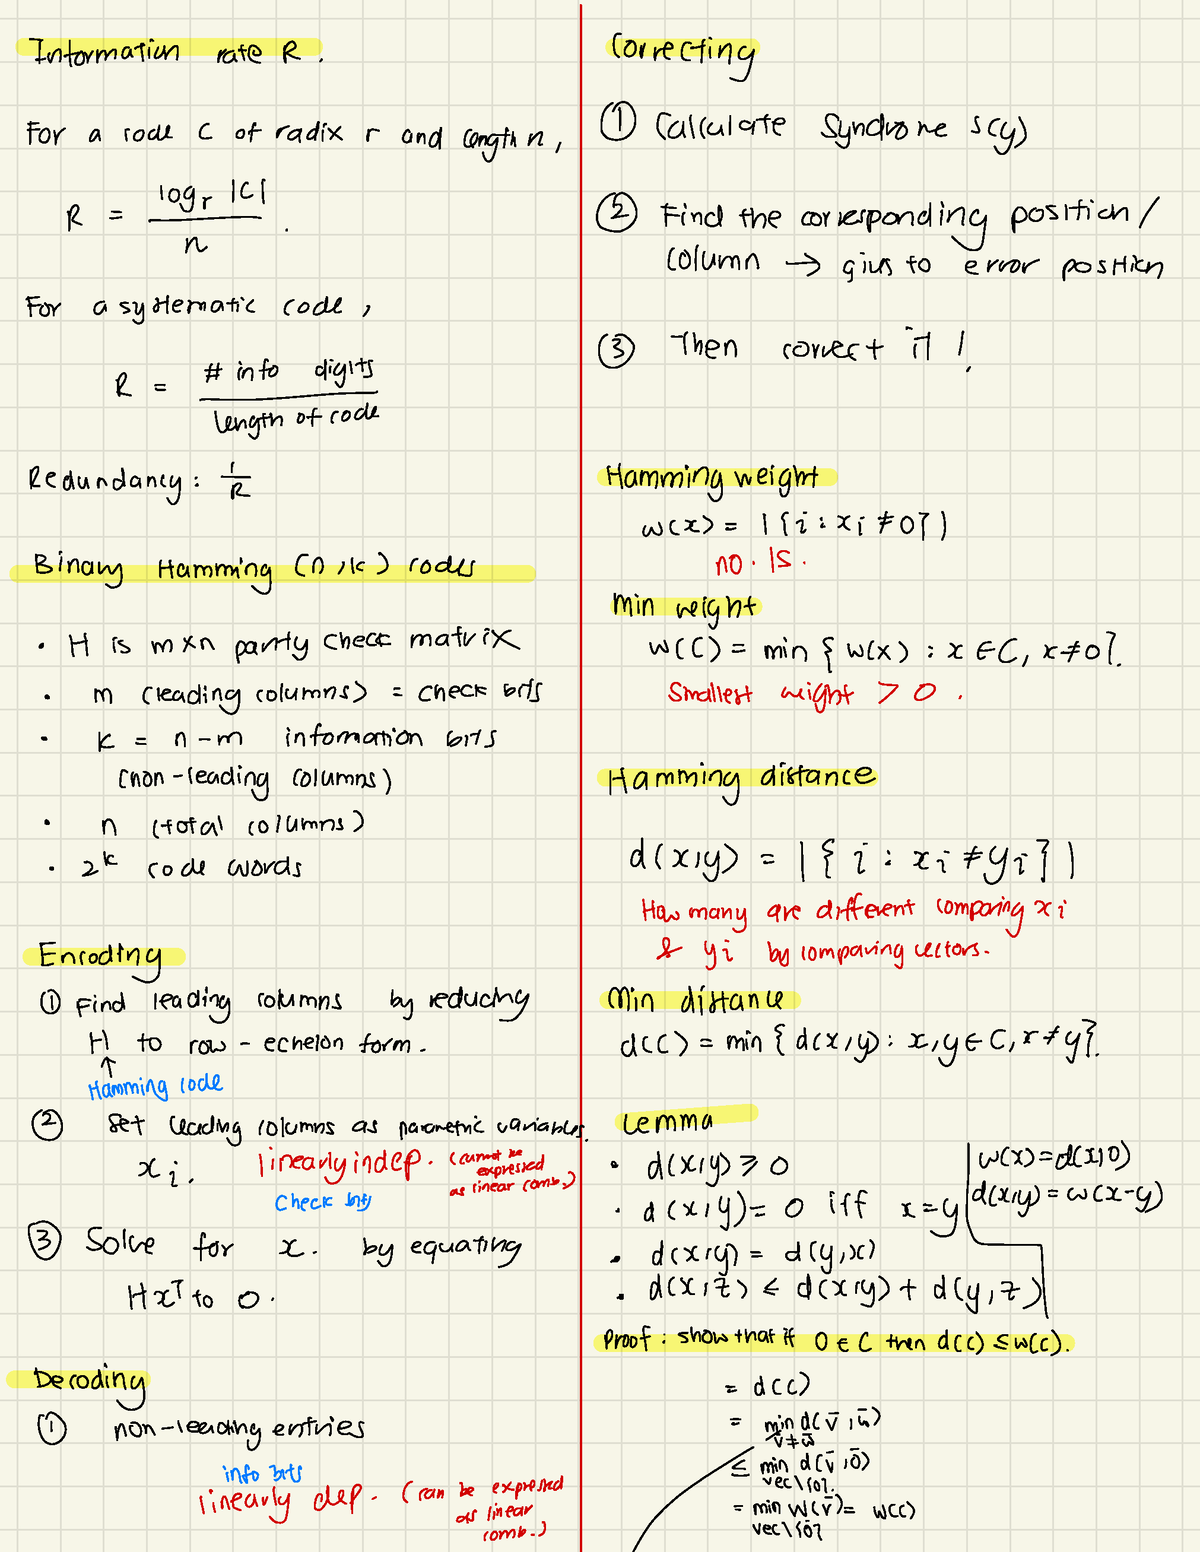 Information rate R.
For a code C of radix r and length n,
R = log_r |C| / n .
For a systematic code,
R = # info digits / length of code
Redundancy: 1/R
Binary Hamming (n,k) codes
• H is m×n parity check matrix
• m (leading columns) = check bits
• k = n-m information bits
(non-leading columns)
• n (total columns)
• 2^k code words
Encoding
① Find leading columns by reducing
H to row-echelon form.
↑
Hamming code
② Set leading columns as parametric variables.
x_i. linearly indep. (cannot be
expressed
as linear comb.)
Check bits
③ Solve for x. by equating
Hx^T to 0.
Decoding
① non-leading entries
info bits
linearly dep. (can be expressed
as linear
comb.)
Correcting
① Calculate Syndrome S(y)
② Find the corresponding position/
column → gives to error position
③ Then correct it!
Hamming weight
w(x) = |{i : x_i ≠ 0}|
no. 1s.
Min weight
w(C) = min { w(x) : x ∈ C, x ≠ 0}.
Smallest weight > 0.
Hamming distance
d(x,y) = |{ i : x_i ≠ y_i }|
How many are different comparing x_i
& y_i by comparing vectors.
Min distance
d(C) = min { d(x,y) : x,y ∈ C, x ≠ y}.
Lemma
• d(x,y) ≥ 0
• d(x,y) = 0 iff x = y
• d(x,y) = d(y,x)
• d(x,z) ≤ d(x,y) + d(y,z)
w(x) = d(x,0)
d(x,y) = w(x-y)
Proof: show that if 0 ∈ C then d(C) ≤ w(C).
= d(C)
= min d(v̄,w̄)
v̄≠w̄
≤ min d(v̄,0̄)
v∈C\{0}.
= min w(v̄) = w(C)
v∈C\{0}